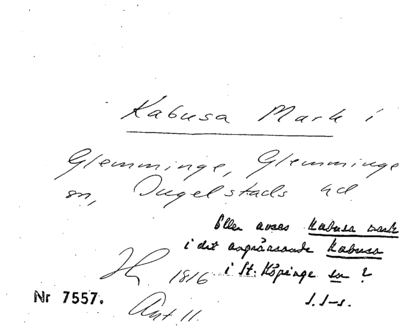 Kabusa Mark i
Glemminge, Glemminge
sn, Ingelstads hd.
Eller avses Kabusa mark
i det angränsande Kabusa
i St. Köpinge sn?
1816
S. I-s.
Nr 7557.
Akt 11.